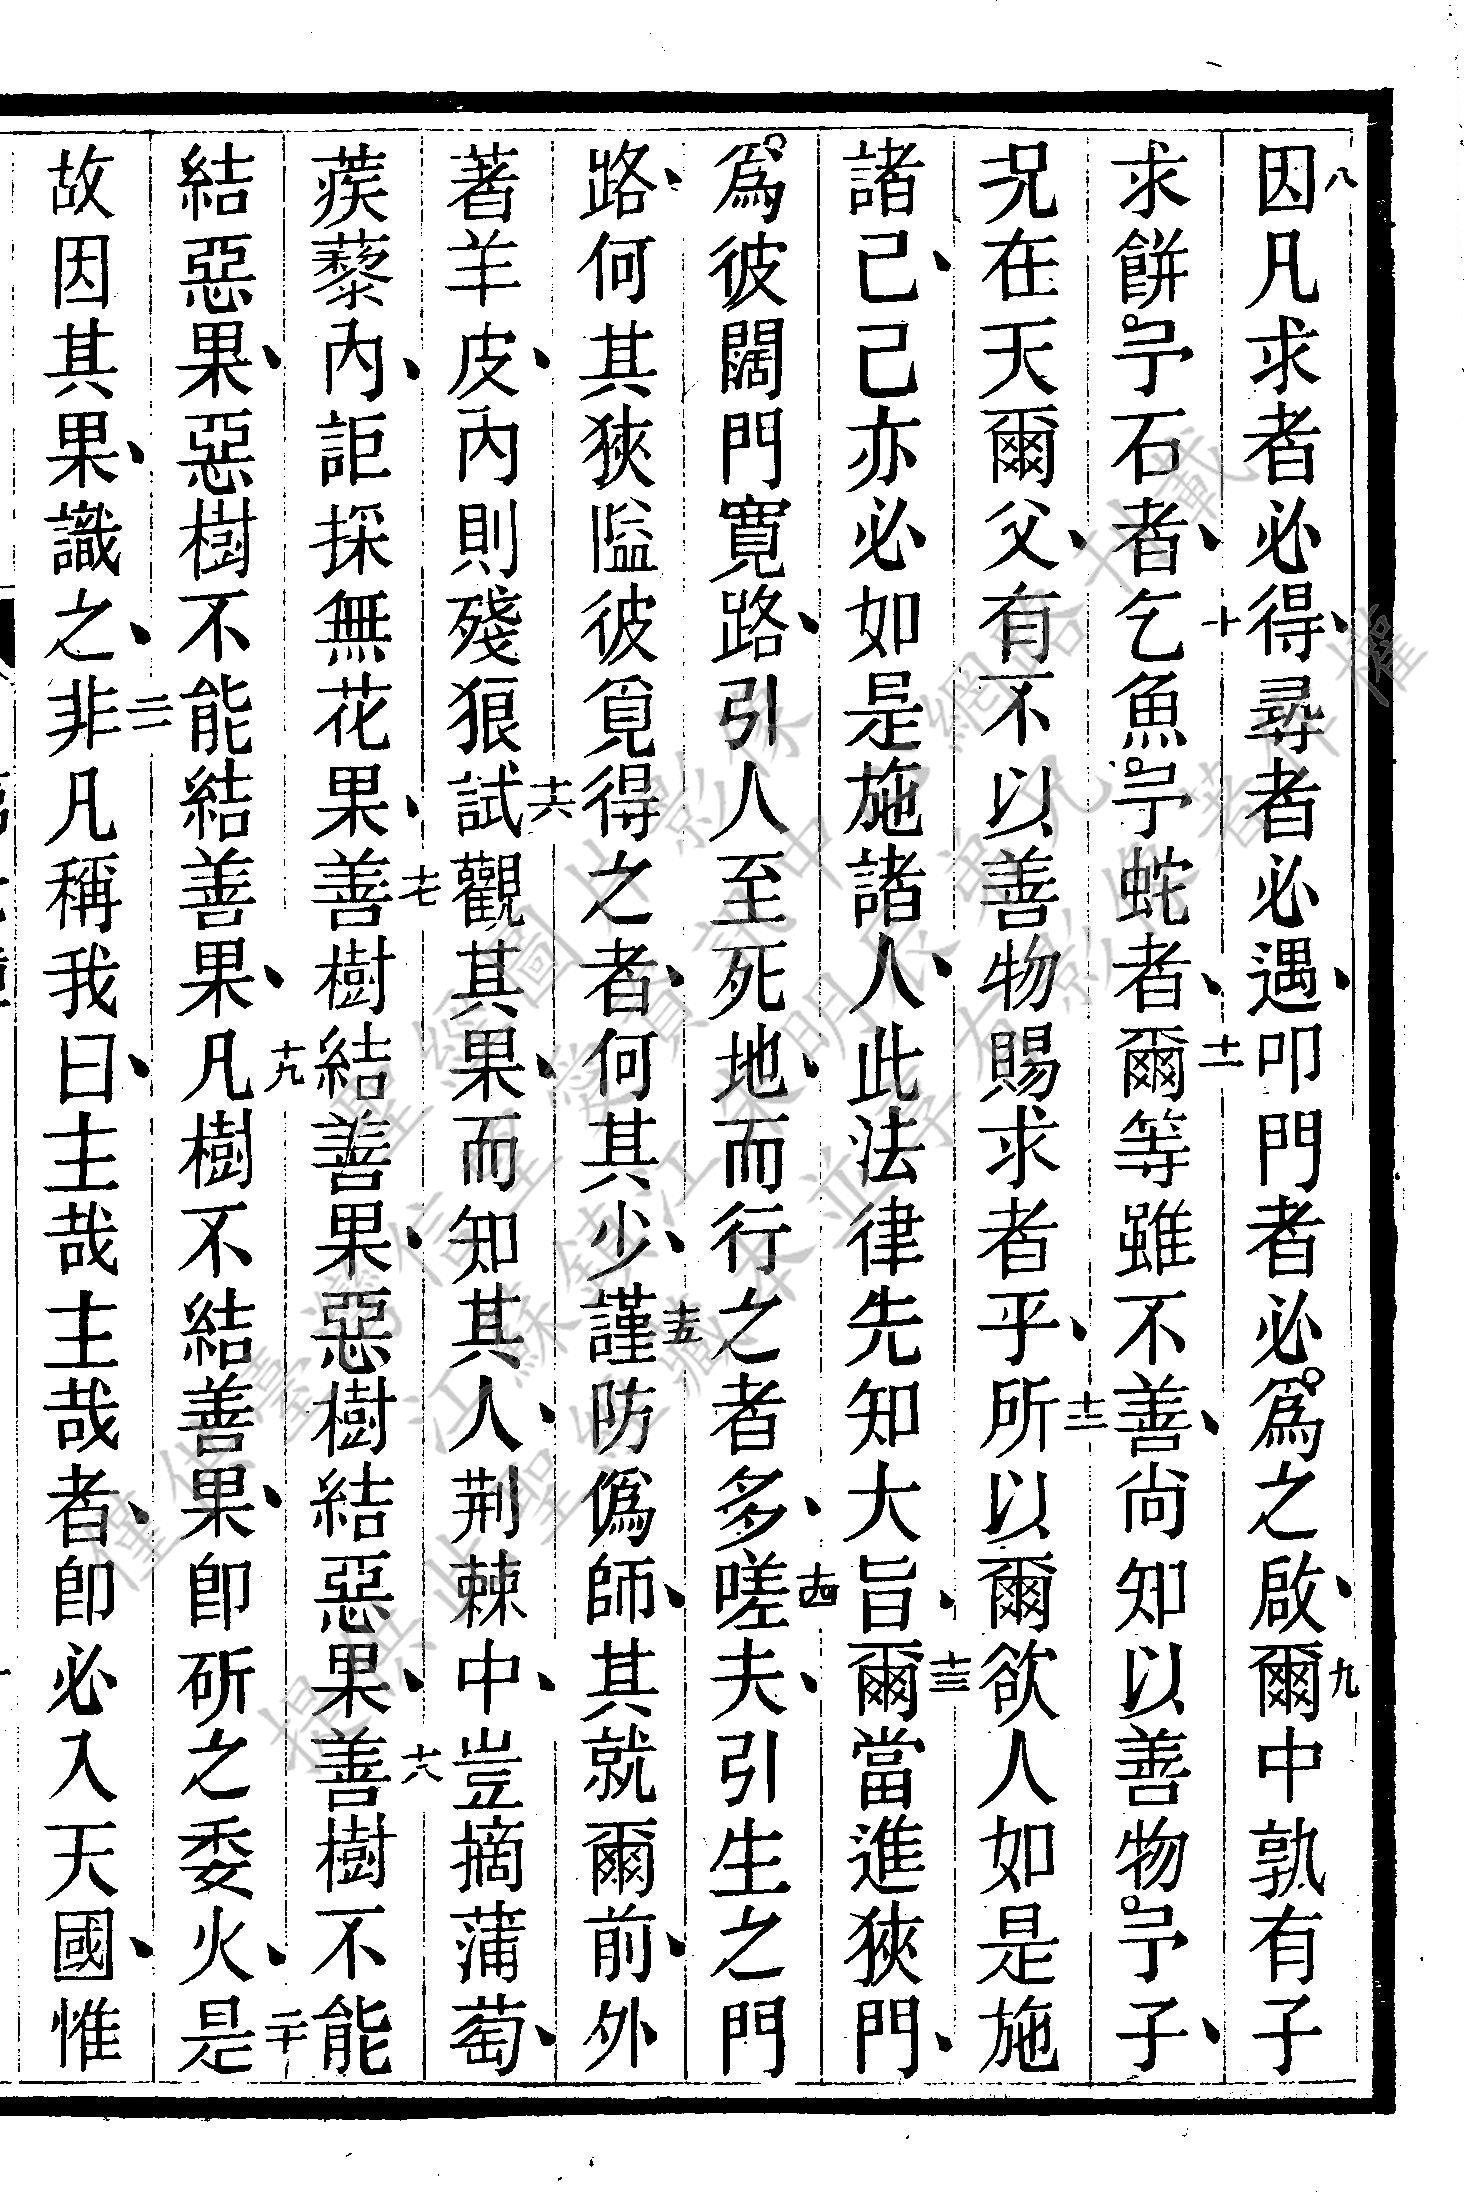 八因凡求者必得、尋者必遇、叩門者必爲之啟、九爾中孰有子
求餅予石者、十乞魚予蛇者、十一爾等雖不善、尚知以善物予子、
况在天爾父、有不以善物賜求者乎、十二所以爾欲人如是施
諸己、己亦必如是施諸人、此法律先知大旨、十三爾當進狹門、
爲彼闊門寬路、引人至死地、而行之者多、十四嗟夫、引生之門
路、何其狹隘彼覓得之者、何其少、十五謹防僞師、其就爾前、外
著羊皮、內則殘狼、十六試觀其果、而知其人、荆棘中、豈摘蒲萄、
蒺藜內、詎採無花果、十七善樹結善果、惡樹結惡果、十八善樹不能
結惡果、惡樹不能結善果、十九凡樹不結善果、即斫之委火、二十是
故因其果、識之、二一非凡稱我曰、主哉主哉者、即必入天國、惟